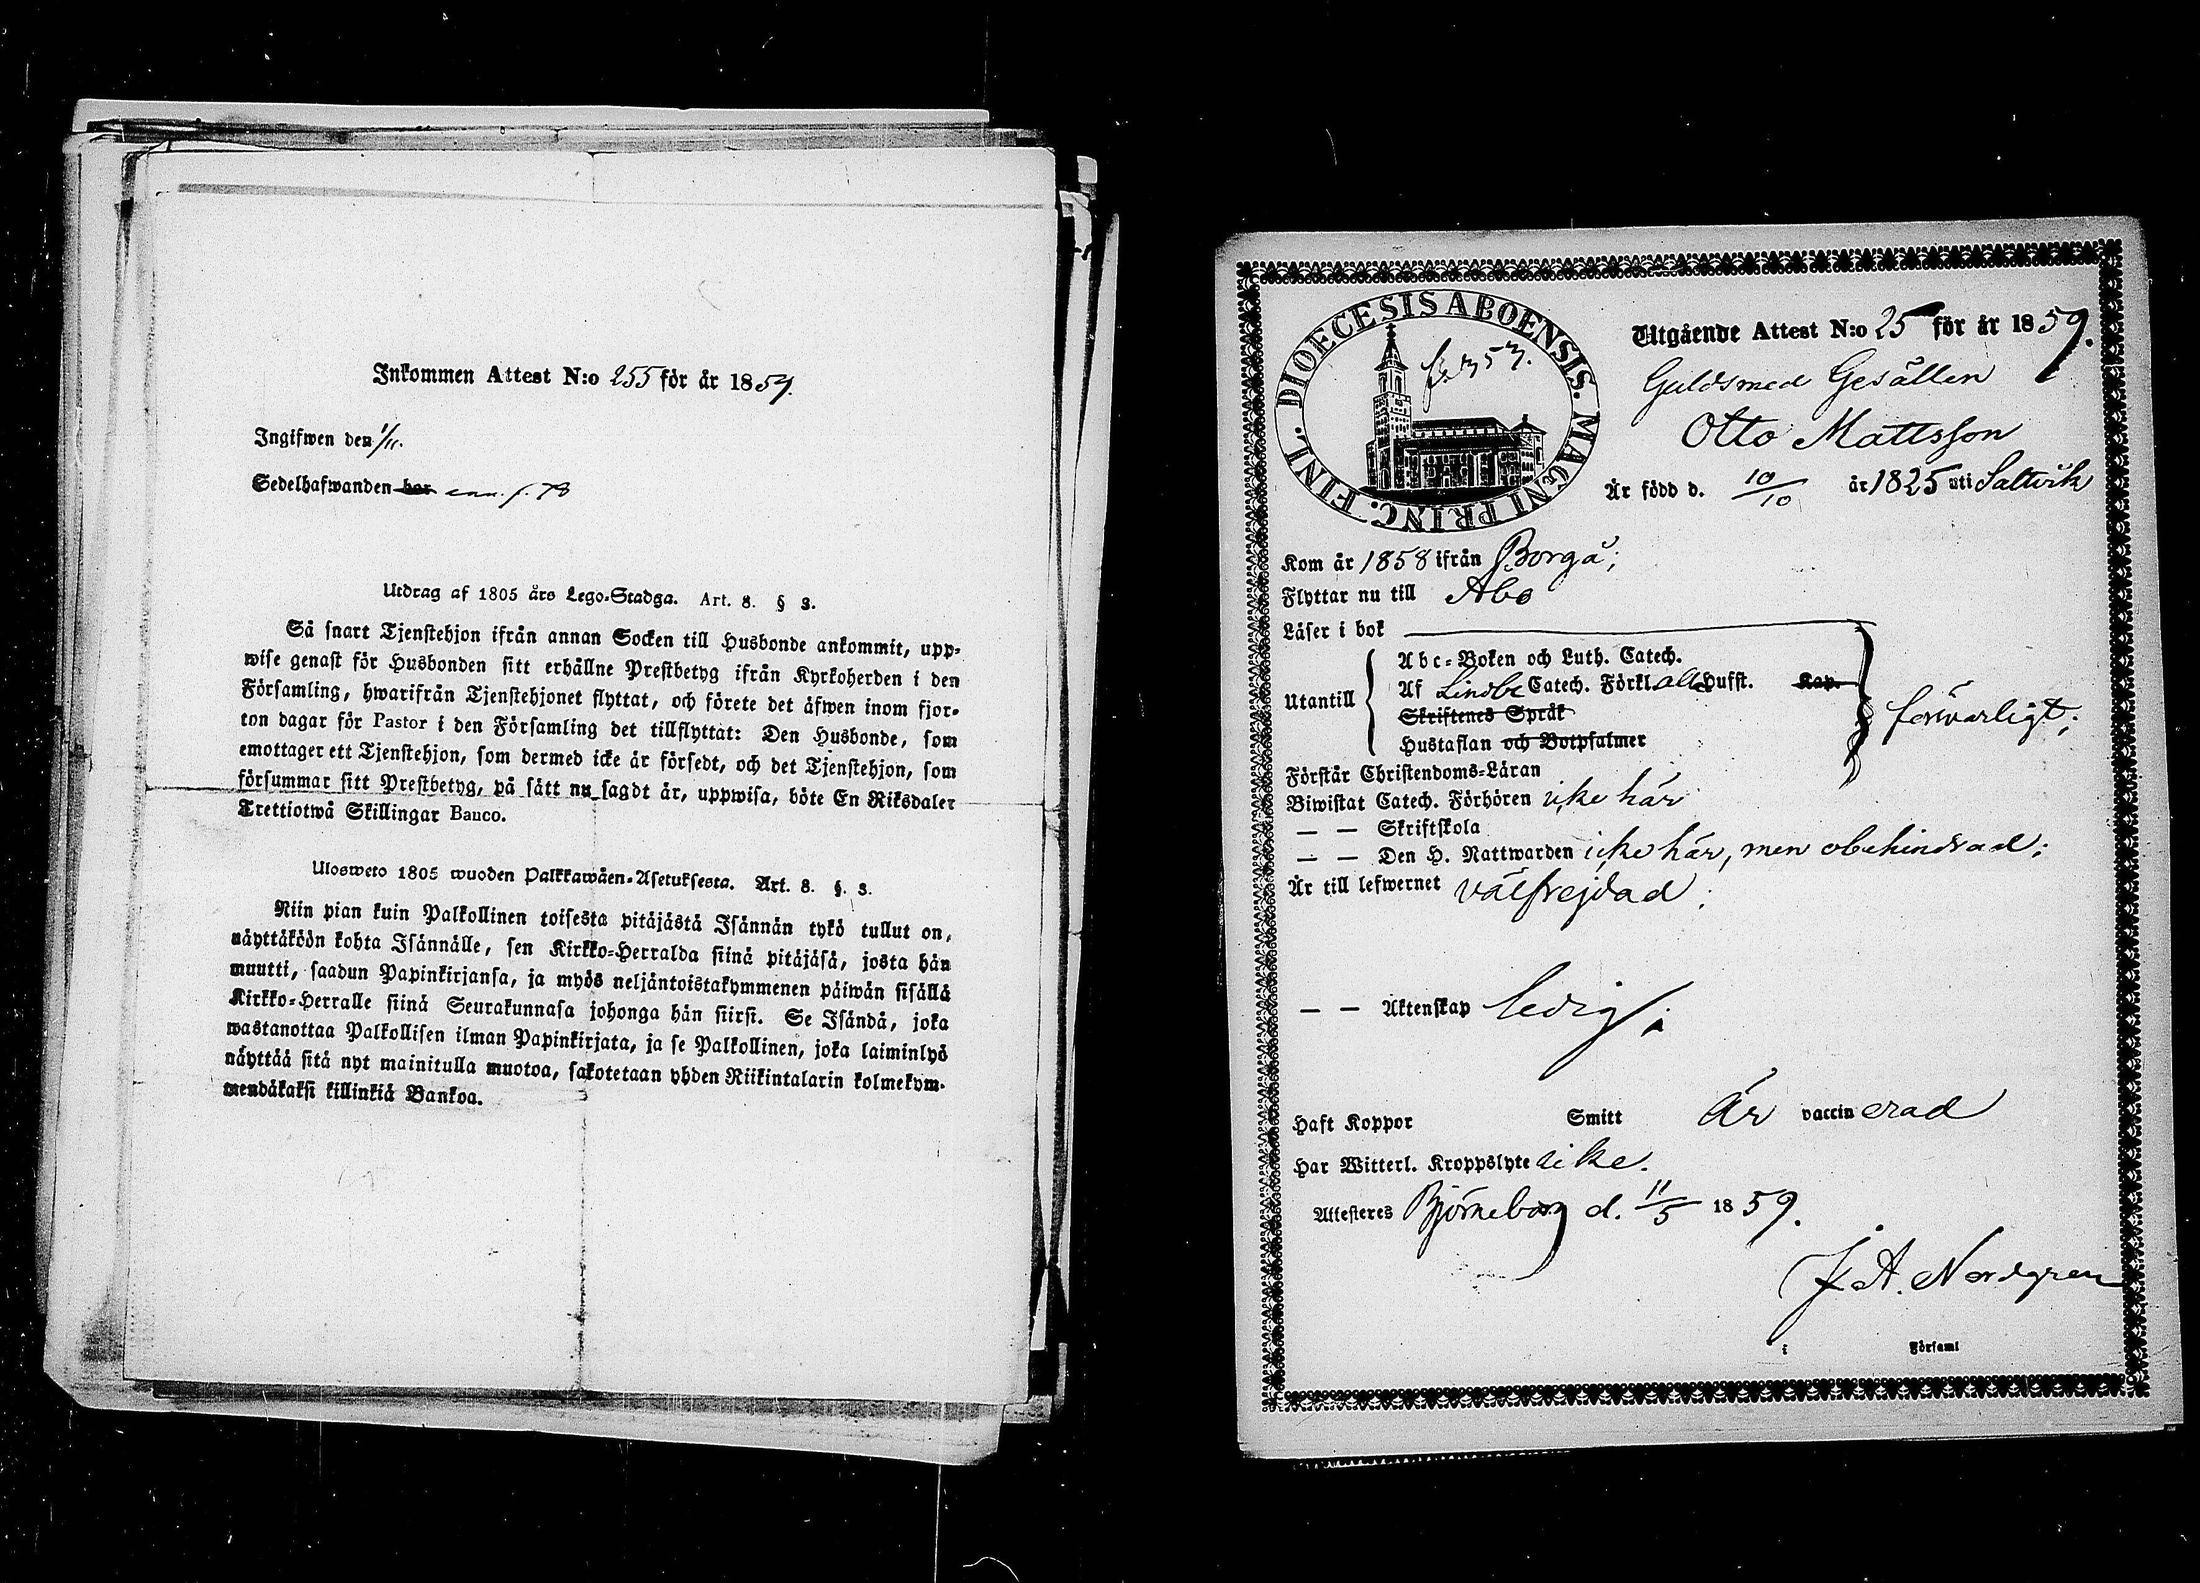 Inkommen Attest N:o 255 för år 1859.
Ingifwen den 1/11.
Sedelhafwanden har enn. f. 78
Utdrag af 1805 års Lego-Stadga. Art. 8. § 3.
Så snart Tjenstehjon ifrån annan Socken till Husbonde ankommit, upp-
wise genast för Husbonden sitt erhållne Prestbetyg ifrån Kyrkoherden i den
Församling, hwarifrån Tjenstehjonet flyttat, och förete det äfwen inom fjor-
ton dagar för Pastor i den Församling det tillflyttat: Den Husbonde, som
emottager ett Tjenstehjon, som dermed icke är försedt, och det Tjenstehjon, som
försummar sitt Prestbetyg, på sätt nu sagdt är, uppwisa, böte En Riksdaler
Trettiotwå Skillingar Banco.
Ulosweto 1805 wuoden Palkkawäen-Asetuksesta. Art. 8. §. 3.
Niin pian kuin Palkollinen toisesta pitäjästä Isännän tykö tullut on,
näyttäköön kohta Isännälle, sen Kirkko-Herralda siinä pitäjäsä, josta hän
muutti, saadun Papinkirjansa, ja myös neljäntoistakymmenen päiwän sisällä
Kirkko-Herralle siinä Seurakunnasa johonga hän siirsi. Se Isändä, joka
wastanottaa Palkollisen ilman Papinkirjata, ja se Palkollinen, joka laiminlyö
näyttää sitä nyt mainitulla muotoa, sakotetaan yhden Riikintalarin kolmekym-
mendäkaksi killinkiä Bankoa.
DIOECESIS ABOENSIS. MAGNI PRINC. FINL.
fr. 353.
Utgående Attest N:o 25 för år 1859.
Guldsmed Gesällen
Otto Mattsson
Är född d. 10/10 år 1825 uti Saltvik
Kom år 1858 ifrån Borgå;
Flyttar nu till Åbo
Läser i bok
Utantill
Abc-Boken och Luth. Catech.
Af Lindbe Catech. Förkl. alla Hufst. Kap.
Skriftenes Språk
Hustaflan och Botpsalmer
försvarligt;
Förstår Christendoms-Läran
Biwistat Catech. Förhören icke här
— — Skriftskola
— — Den H. Nattwarden icke här, men obehindrad;
Är till lefwernet välfrejdad;
— — Äktenskap ledig;
Haft Koppor Smitt Är vaccinerad
Har Witterl. Kroppslyte icke.
Attesteres Björneborg d. 11/5 1859.
J. A. Nordgren
i Församl